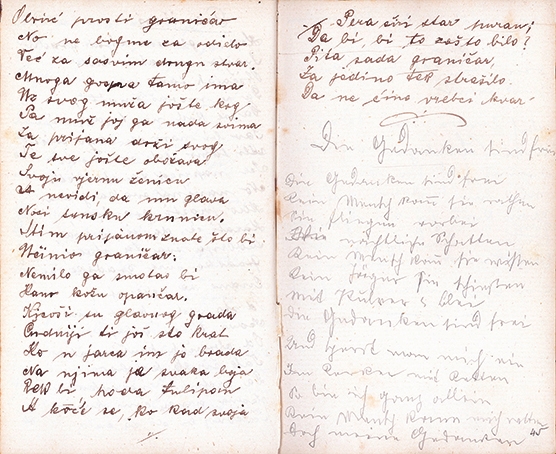 Obrnć prosti graničar
No ne bogme za vidido
Već za sasvim drugu stvar.
Mnoga gospa tamo ima
Uz svog muža jošte kog
Pa muž joj ga nada svima
Za prijana drži svog
Te sve jošte obožava
Svoju vjernu ženicu
A nevidi, da mu glava
Nosi tursku krunicu.
S tim prijanom znate što bi
Učinio graničar:
Nemilo ga smotao bi
Kano kožu opančar.
Njeoši su glavnog grada
Čudniji ti još sto krat
Ko u jarca im je brada
Na njima je svaka boja
Rek bi hoda tulipan
A koče se, ko kad svoja
Pera širi star puran;
Da bi bi to zašto bilo?
Pita sada graničar,
Za jedino tek strašilo
Da ne čine vrebci kvar
Die Gedanken sind frei
Die Gedanken sind frei
Kein Mensch kann sie
Sie fliegen vorbei
Wie nächtliche Schatten
Kein Mensch kann sie wissen
Kein Jäger sie schießen
Mit Pulver & blei
die Gedanken sind frei
Und sperrt man mich ein
Im Kerker mit Ketten
So bin ich ganz allein
Kein Mensch kann mich retten
Doch meine Gedanken